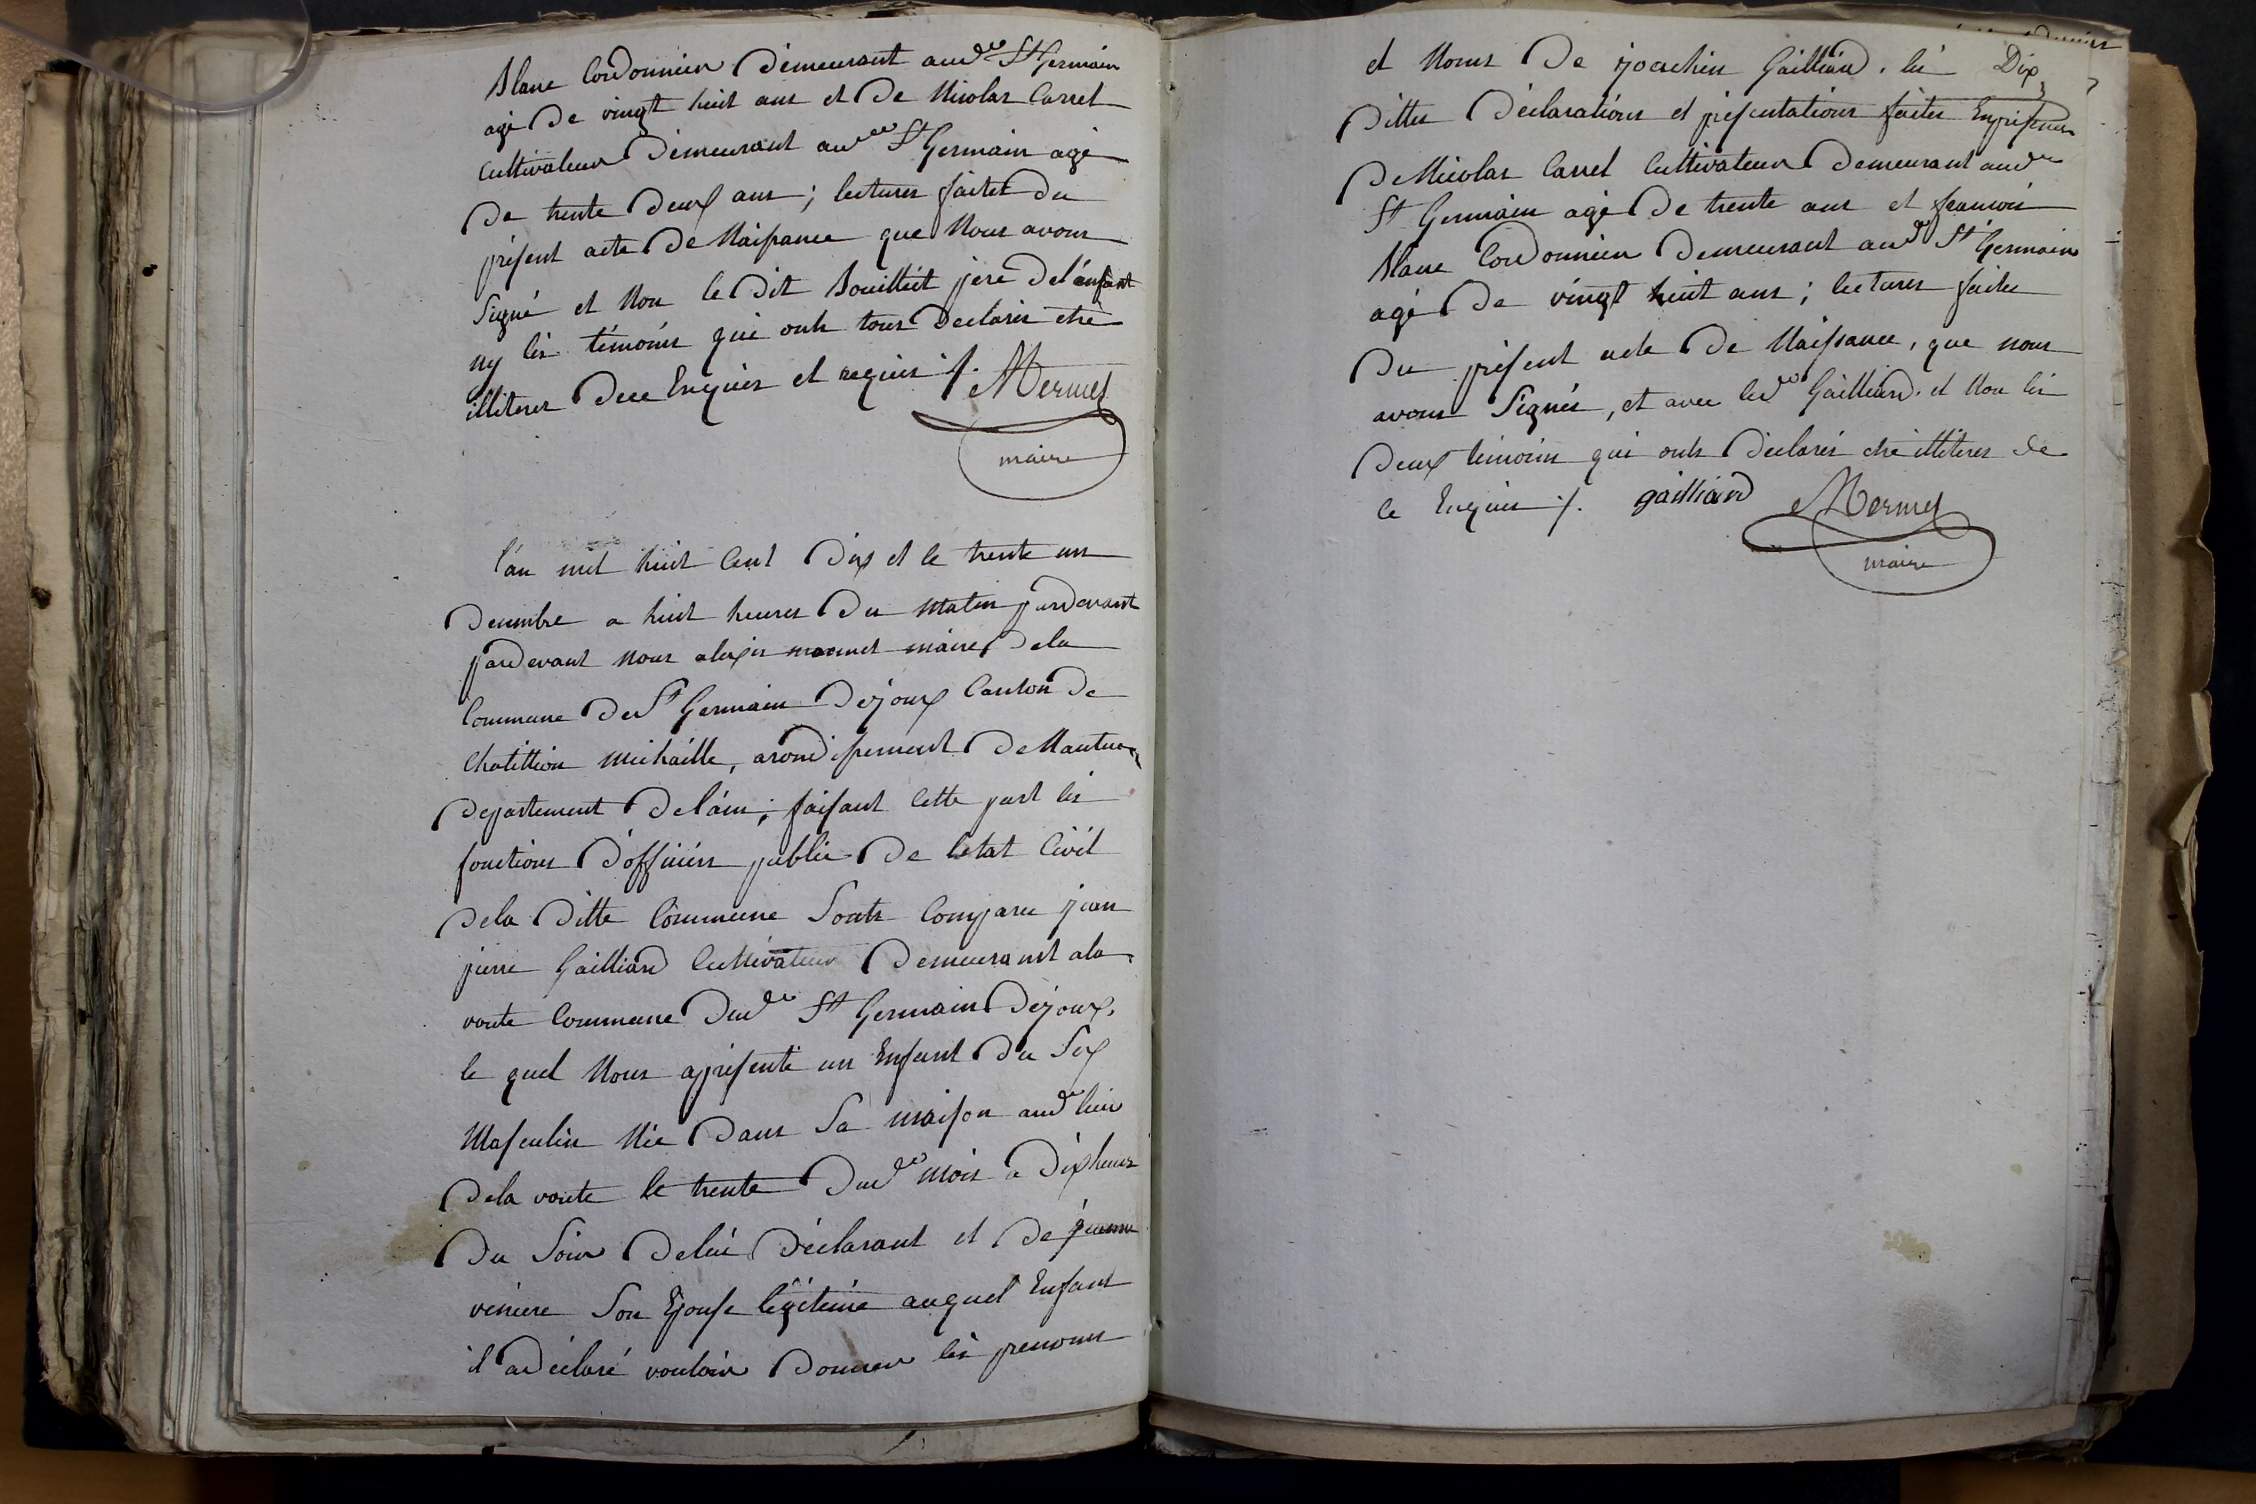 Blanc Cordonnier demeurant aud.t St Germain
agé de vingt huit ans et de Nicolas Carrel
cultivateur demeurant aud.t St Germain agé
de trente deux ans ; lectures faites du
présent acte de Naissance que Nous avons
Signé et Non le dit Bouilliet pere de lénfant
ny les témoins qui onts tous declarés etre
illiteres dece Enquis et requis ./. Mermet
maire
l'an mil huit Cent dix et le trente un
decembre a huit heures du Matin pardevant
pardevant Nous alexis mermet maire dela
Commune de St Germain dejoux Canton de
Chatillion Michaille, arondissement de Nantua
departement de láin ; faisant cette part les
fonctions dófficiér public de letat Civil
dela ditte Commune Sonts Comparu jean
pierre Gailliard Cultivateur demeurant ala
voute Commune dud.t St Germain dejoux,
le quel Nous apresenté un Enfant du Sex
Masculin Née dans Sa maison aud.t lieu
dela voute le trente dud.t mois a dix heures
du Soir delui déclarant et de
veniere Son Epouse légitime auquel Enfant
il adéclaré vouloir donner les prenoms
et Noms de joachin Gailliard. les Dix
dittes déclarations et présentations faites Enpresence
de Nicolas Carrel Cultivateur demeurant aud.t
St Germain agé de trente ans et francois
Blanc Cordonnier demeurant aud.t St Germain
agé de vingt huit ans ; lectures faites
du présent acte de Naissance, que nous
avons Signés, et avec led.t Gailliard. et Non les
deux témoins qui onts déclarés etre illiteres de
ce Enquis ./. gailliard Mermet
maire